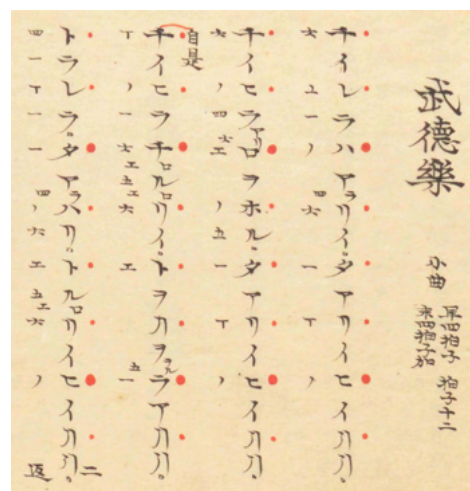 武德樂 小曲 早四拍子 拍子十二
末四拍子加
チイレラハアラリイタアリイヒイリリ
六 ⊥ 一 ノ 四 六 一 丅 ノ
チイヒラロヲホルタアリイヒイリリ
六 ノ 四 六 工 ノ 五 一 丅 ノ
自是
チイヒラチルリイトヲリヲラアリリ
丅 ノ 一 六 工 五 工 六 工 五 一
トラレラタアハリトルリイヒイリリ 二返
四 一 丅 一 一 四 ノ 六 工 五 工 六 ノ